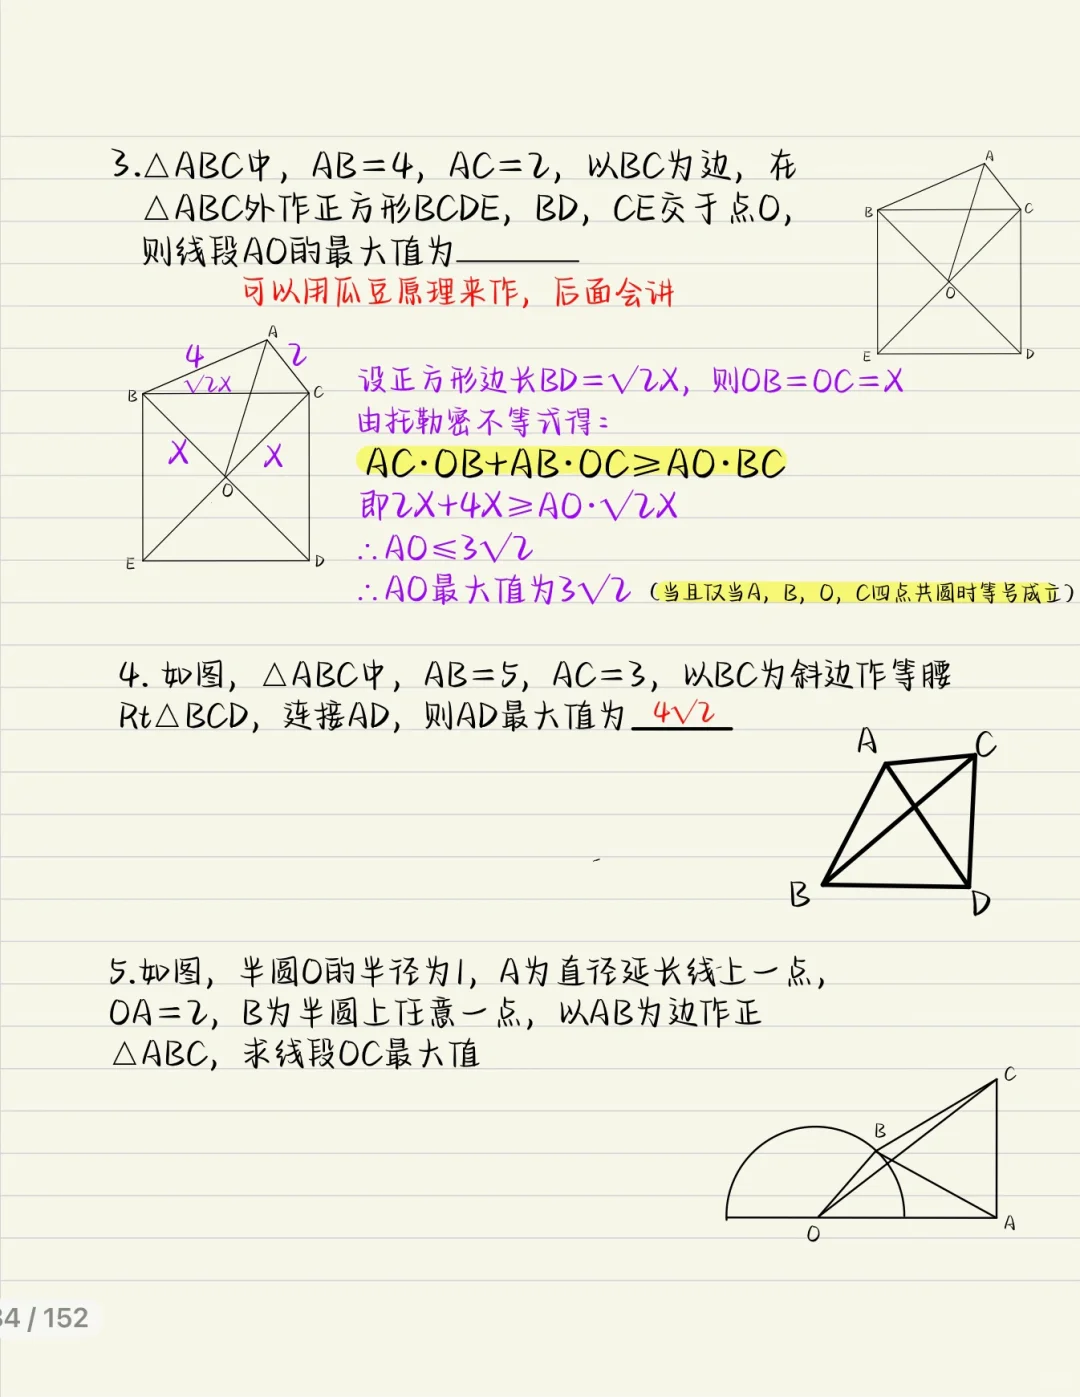 3.△ABC中，AB=4，AC=2，以BC为边，在
△ABC外作正方形BCDE，BD，CE交于点O，
则线段AO的最大值为______
可以用瓜豆原理来作，后面会讲
A
B
C
O
E
D
A
4
2
√2X
B
C
X
X
O
E
D
设正方形边长BD=√2X，则OB=OC=X
由托勒密不等式得：
AC·OB+AB·OC≥AO·BC
即2X+4X≥AO·√2X
∴AO≤3√2
∴AO最大值为3√2（当且仅当A，B，O，C四点共圆时等号成立）
4. 如图，△ABC中，AB=5，AC=3，以BC为斜边作等腰
Rt△BCD，连接AD，则AD最大值为 4√2
A
C
B
D
5.如图，半圆O的半径为1，A为直径延长线上一点，
OA=2，B为半圆上任意一点，以AB为边作正
△ABC，求线段OC最大值
C
B
O
A
34 / 152